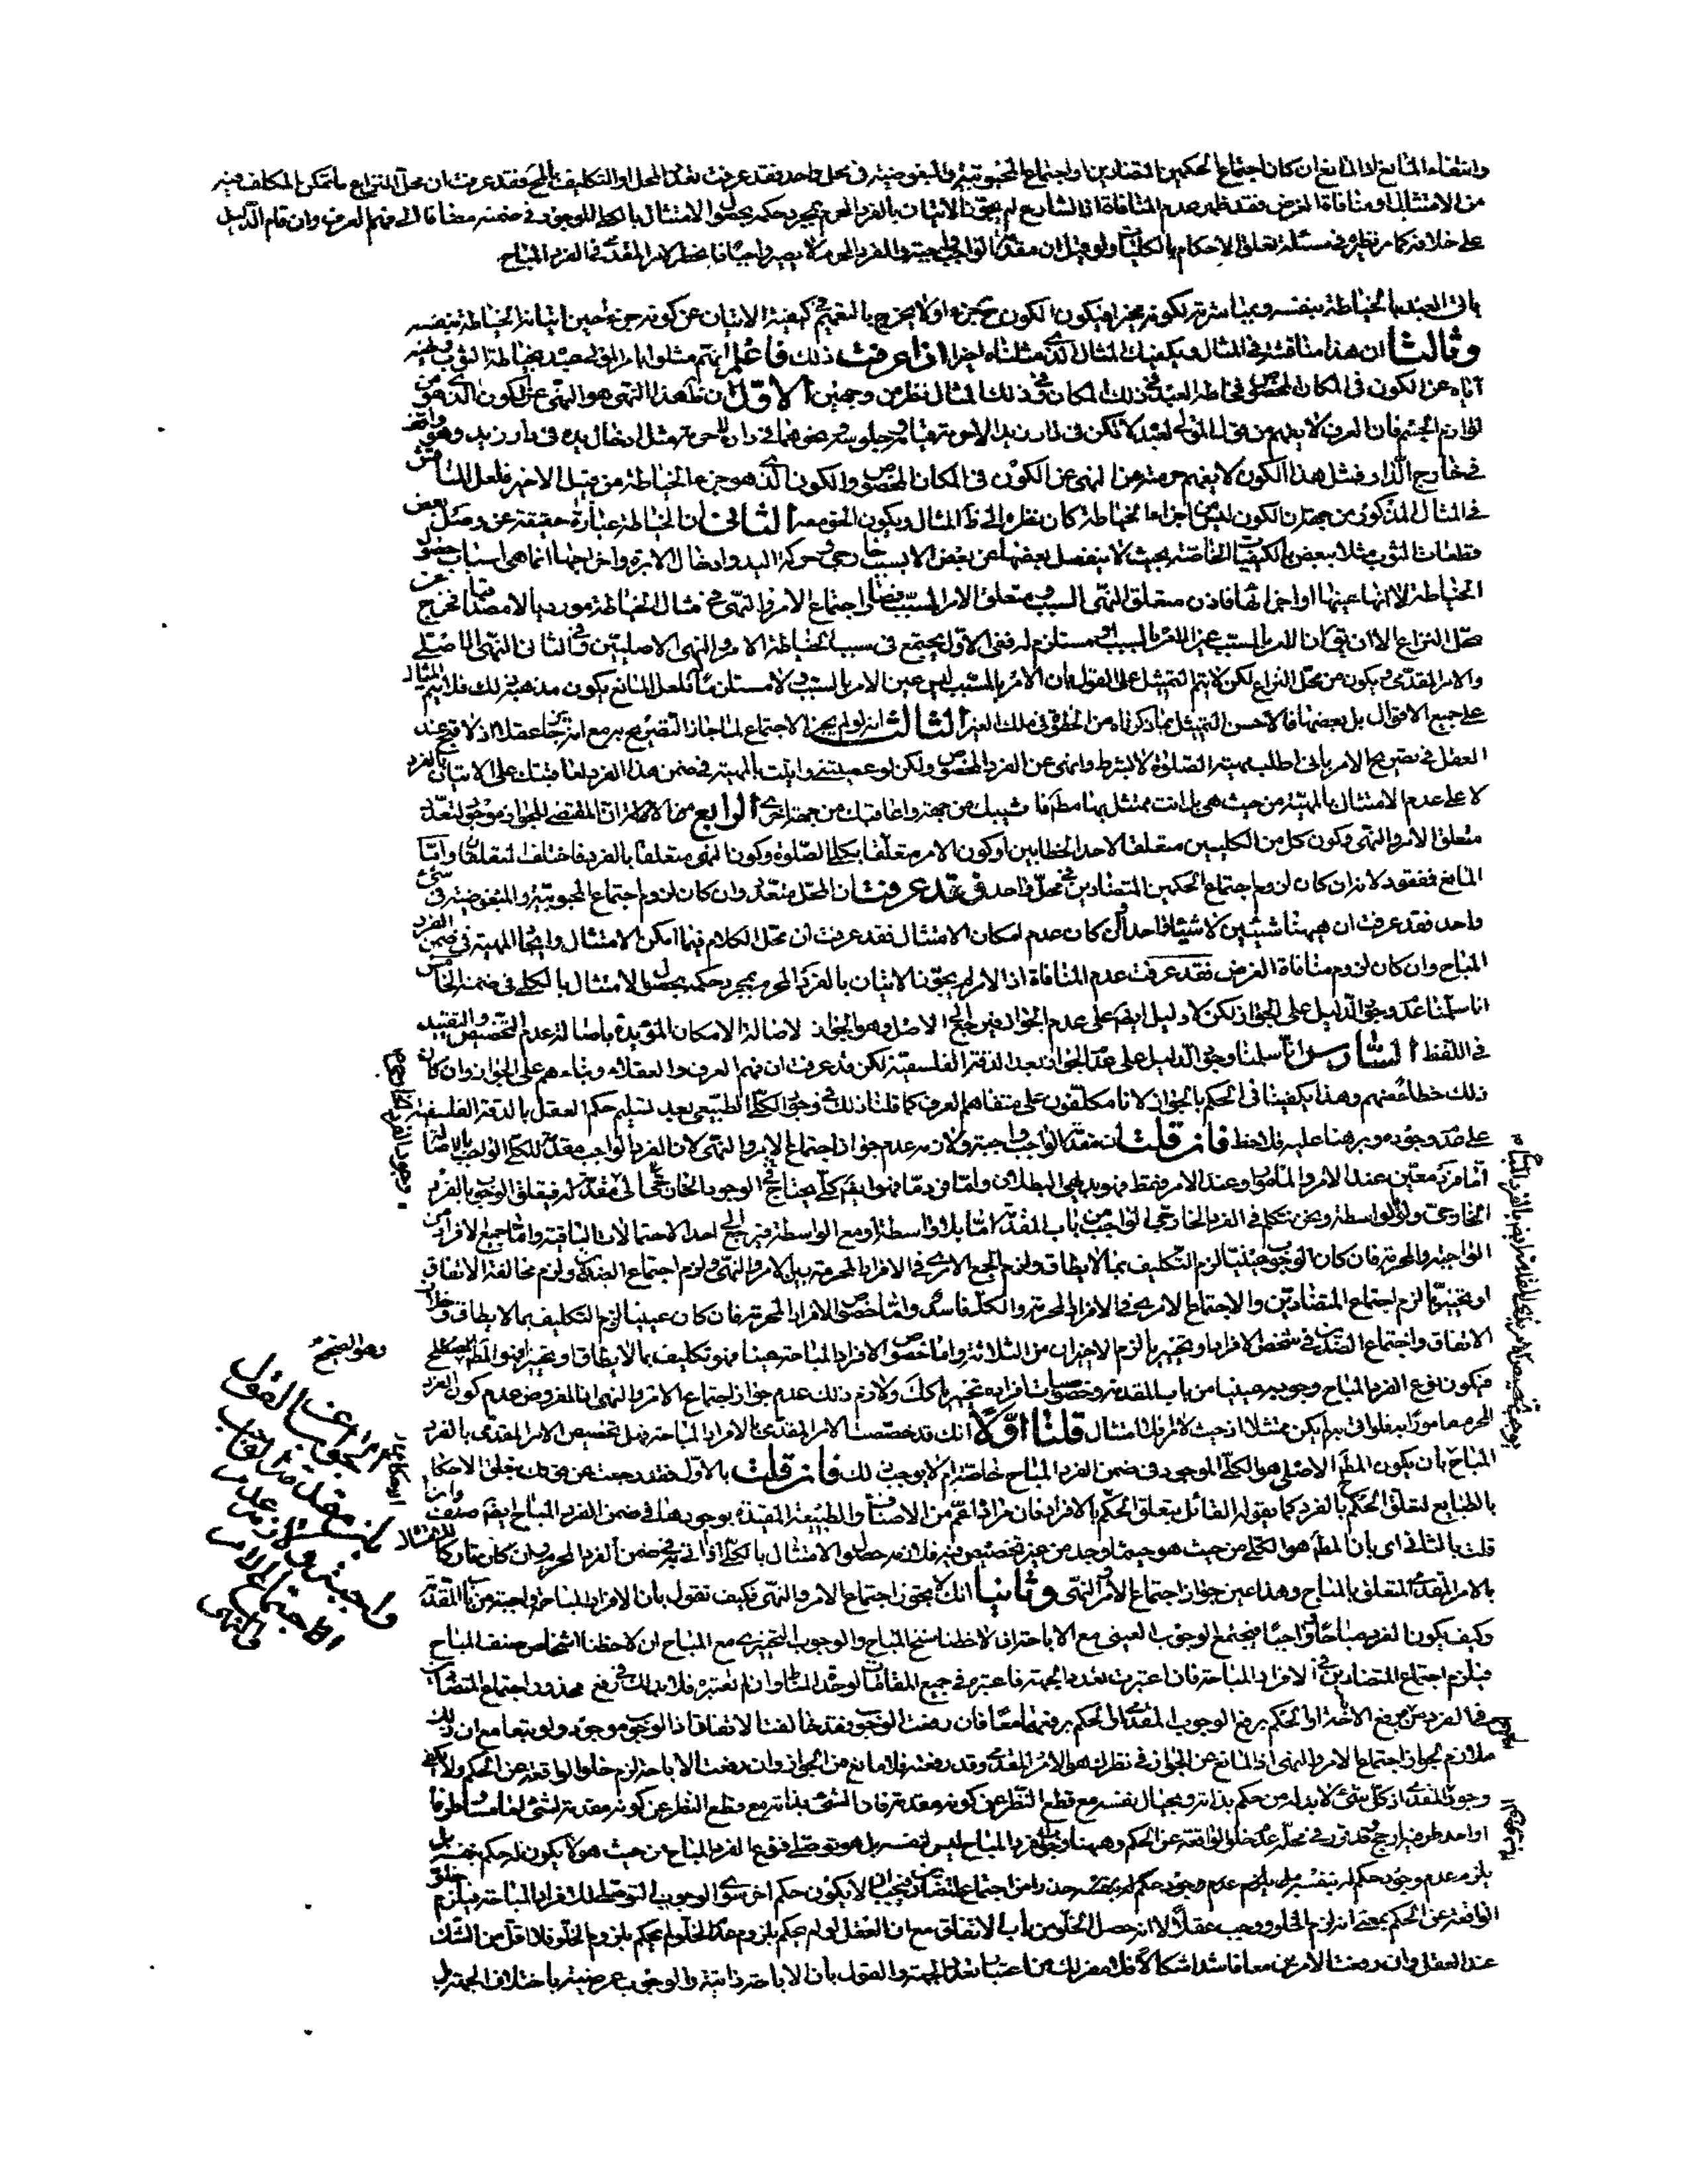 وانتفاء المانع لا المانع ان كان اجتماع الحكمين المتضادين او اجتماع المحبوبية والمبغوضية فى محل واحد فقد عرفت تعدد المحل او التكليف بالمحال فقد عرفت ان محل النزاع ما تمكن المكلف فيه
من الامتثال او منافاة الغرض فقد ظهر عدم المنافاة اذ الشارع لم يجوزنا الاتيان بالفرد المحرم بمجرد حكمه بحصول الامتثال بالكلى الموجود فى ضمنه مضافا الى فهم العرف وان قام الدليل
على خلافه كما مر نظيره فى مسئلة تعلق الاحكام بالكليات ولو قيل ان مقدمة الواجب واجبة والفرد المحرم لا يصير واجبا فانحصر الامر المقدمى فى الفرد المباح
ياتى العبد بالخياطة بنفسه وبمباشرته لكونه مجزا فيكون الكون ح جزء او لا يخرج بالتعميم فى كيفية الاتيان عن كونه جزء حين اتيانه الخياطة بنفسه
وثالثا ان هذا مناقشة فى المثال ويكفيك المثال الذى مثلناه اخرا اذا عرفت ذلك فاعلم انهم مثلوا بامر المولى عبده بخياطة الثوب ونهيه
اياه عن الكون فى المكان المخصوص فخاطه العبد فى ذلك المكان وفى ذلك المثال نظر من وجهين الاول ان ظ هذا النهى هو النهى عن الكون الذى هو من
لوازم الجسم فان العرف لا يفهم من قول المولى لعبده لا تكن فى دار زيد الا حرمة قيامه وجلوسه ونحوهما فى داره لا حرمة مثل ادخال يده فى دار زيد وهو واقف
فى خارج الدار فمثل هذا الكون لا يفهم حرمته من النهى عن الكون فى المكان المخصوص والكون الذى هو جزء الخياطة من قبيل الاخير فلعل المناقش
فى المثال المذكور من جهة ان الكون ليس من اجزاء الخياطة كان نظره الى ظ المثال ويكون الحق معه الثانى ان الخياطة عبارة حقيقة عن وصل بعض
قطعات الثوب مثلا ببعض بالكيفية الخاصة بحيث لا ينفصل بعضها عن بعض الا بسبب خارجى وحركة اليد وادخال الابرة واخراجها انما هى اسباب حصول
الخياطة لا انها عينها او اجزائها فاذن متعلق النهى السبب ومتعلق الامر المسبب فصار اجتماع الامر والنهى فى مثال الخياطة مورديا لا مصداقيا فخرج عن
محل النزاع الا ان يق ان الامر بالمسبب عين الامر بالسبب او مستلزم له ففى الاول يجتمع فى سبب الخياطة الامر والنهى الاصليين وفى الثانى النهى الاصلى
والامر المقدمى ويكون من محل النزاع لكن لا يتم التمثيل على القول بان الامر بالمسبب ليس عين الامر بالسبب ولا مستلزما فلعل المانع يكون مذهبه ذلك فلا يتم المثال
على جميع الاقوال بل بعضها فالاحسن التمثيل بما ذكرناه من الخطوة فى ملك الغير الثالث انه لو لم يجز الاجتماع لما جاز التصريح به مع انه جايز عقلا اذ لا قبح عند
العقل فى تصريح الامر بانى اطلب مهية الصلوة لا بشرط وانهى عن الفرد المخصوص ولكن لو عصيتنى واتيت بالمهية فى ضمن هذا الفرد لعاقبتك على الاتيان بالفرد
لا على عدم الامتثال بالمهية من حيث هى بل انت ممتثل بها مط فاثيبك من جهة واعاقبك من جهة اخرى الرابع ان المقتضى للجواز موجود لتعدد
متعلق الامر والنهى وكون كل من الكليين متعلقا لاحد الخطابين او كون الامر متعلقا بكلى الصلوة وكون النهى متعلقا بالفرد فاختلف المتعلقان واما
المانع فمفقود لانه ان كان لزوم اجتماع الحكمين المتضادين فى محل واحد فقد عرفت ان المحل متعدد وان كان لزوم اجتماع المحبوبية والمبغوضية فى شىء
واحد فقد عرفت ان ههنا شيئين لا شيئا واحدا وان كان عدم امكان الامتثال فقد عرفت ان محل الكلام فيما امكن الامتثال وايجاد المهية فى ضمن الفرد
المباح وان كان لزوم منافاة الغرض فقد عرفت عدم المنافاة اذ الامر لم يجوزنا الاتيان بالفرد المحرم بمجرد حكمه بحصول الامتثال بالكلى فى ضمنه الخامس
انا سلمنا عدم وجود الدليل على الجواز لكن لا دليل ايضا على عدم الجواز فيرجع الى الاصل وهو الجواز لاصالة الامكان المؤيدة باصالة عدم التخصيص والتقييد
فى اللفظ السادس انا سلمنا وجود الدليل على عدم الجواز بعد الدقة الفلسفية لكن قد عرفت ان فهم العرف والعقلاء وبناءهم على الجواز وان كان
ذلك خطا عنهم وهذا يكفينا فى الحكم بالجواز لانا مكلفون على متفاهم العرف كما قلنا ذلك فى وجود الكلى الطبيعى بعد تسليم حكم العقل بالدقة الفلسفية
على عدم وجوده وبرهنا عليه فلاحظ فان قلت ان مقدمة الواجب واجبة ولازمه عدم جواز اجتماع الامر والنهى لان الفرد الواجب مقدمة للكلى الواجب بالاصالة
اما فرد معين عند الامر والمامور او عند الامر فقط فهو بديهى البطلان واما فرد ما فهو ايضا كلى يحتاج فى الوجود الخارجى الى مقدمة اخرى فيتعلق الوجوب بالفرد
الخارجى ولو بالواسطة ونحن نتكلم فى الفرد الخارجى الواجب من باب المقدمة اما بلا واسطة او مع الواسطة فيرجع الى احد الاحتمالات الباقية واما جميع الافراد من
الواجبة والمحرمة فان كان الوجوب عينيا لزم التكليف بما لا يطاق ولزم الجمع الامرى فى الافراد المحرمة بين الامر والنهى ولزم اجتماع الضدين ولزم مخالفة الاتفاق
او تخييريا لزم اجتماع المتضادين والاجتماع الامرى فى الافراد المحرمة والكل فاسد واما خصوص الافراد المحرمة فان كان عينيا لزم التكليف بما لا يطاق وخلاف
الاتفاق واجتماع الضدين فى شخص الافراد او تخييريا لزم الاخيران من الثلاثة واما خصوص الافراد المباحة عينا فهو تكليف بما لا يطاق او تخييرا فهو المط
فيكون نوع الفرد المباح وجوبه عينيا من باب المقدمة وخصوصيات افراده تخييريا كك ولازم ذلك عدم جواز اجتماع الامر والنهى اذ المفروض عدم كون الفرد
المحرم مامورا به فلو اتى به لم يكن ممتثلا اذ حيث لا امر فلا امتثال قلنا اولا انك قد خصصت الامر المقدمى بالافراد المباحة فهل تخصيص الامر المقدمى بالفرد
المباح بان يكون المط الاصلى هو الكلى الموجود فى ضمن الفرد المباح خاصة ام لا يوجب ذلك فان قلت بالاول فقد رجعت عن قولك بتعلق الاحكام
بالطبايع لتعلق الحكم بالفرد كما يقوله القائل بتعلق الحكم بالافراد فان مراده اعم من الاصناف والطبيعة المقيدة بوجودها فى ضمن الفرد المباح ايضا صنف وان
قلت بالثانى اى بان المط هو الكلى من حيث هو حيثما وجد من غير تخصيص فيه فلازمه حصول الامتثال بالكلى اذا اتى به فى ضمن الفرد المحرم وان كان تاركا
بالامر المقدمى المتعلق بالمباح وهذا عين جواز اجتماع الامر والنهى وثانيا انك لا تجوز اجتماع الامر والنهى فكيف تقول بان الافراد المباحة واجبة من باب المقدمة
وكيف يكون الفرد مباحا وواجبا فيجتمع الوجوب العينى مع الاباحة ان لاحظنا سنخ المباح والوجوب التخييرى مع المباح ان لاحظنا اشخاص صنف المباح
فيلزم اجتماع المتضادين فى الافراد المباحة فان اعتبرت تعدد الجهة فاعتبره فى جميع المقامات لوحدة المناط وان لم تعتبره فلا بد لك فى رفع محذور اجتماع المتضادين
فى الفرد من رفع الاباحة او الحكم برفع الوجوب المقدمى او الحكم برفعهما معا فان رفعت الوجوب فقد خالفنا الاتفاق اذ الوجوب موجود ولو تبعا مع ان ذلك
ملازم لجواز اجتماع الامر والنهى اذ المانع عن الجواز فى نظرك هو الامر المقدمى وقد رفعته فلا مانع من الجواز وان رفعت الاباحة لزم خلو الواقعة عن الحكم ولا يكفى
وجود المقدمى اذ كل شىء لا بد له من حكم بذاته وبحيال نفسه مع قطع النظر عن كونه مقدمة فان الشىء بذاته مع قطع النظر عن كونه مقدمة لشىء
بلزوم عدم وجود حكم له بنفسه
الواقعة عن الحكم بمعنى انه لزم الخلو ووجب عقلا لا انه حصل الخلو من باب الاتفاق مع ان العقل لو لم يحكم بلزوم عدم الخلو لم يحكم بلزوم الخلو فلا اقل من الشك
عند العقل وان رفعت الامرين معا فاشد اشكالا فلا مفر لك من اعتبار تعدد الجهة والقول بان الاباحة ذاتية والوجوب عرضية باختلاف الجهة
وهو الصحيح